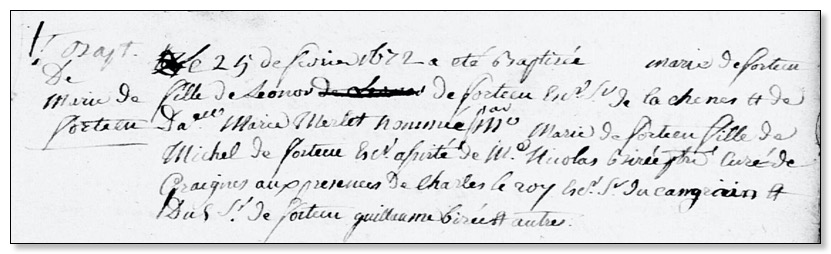 Bapt.
De
Marie de
sorteen
Le 25 de fevrier 1672 a oté Baptisée marie de sorteen
fille de Leonor de sorteen Escr. Sr. de la chenes et de
Da elle Marie Merlet nommée par Marie de sorteen fille de
Michel de sorteen Escr. assisté de Me. Nicolas birée ptre curé de
Graignes aux presences De Charles le roy Escr. Sr. du et
Dud Sr. de sorteen guillaume birée et autres.